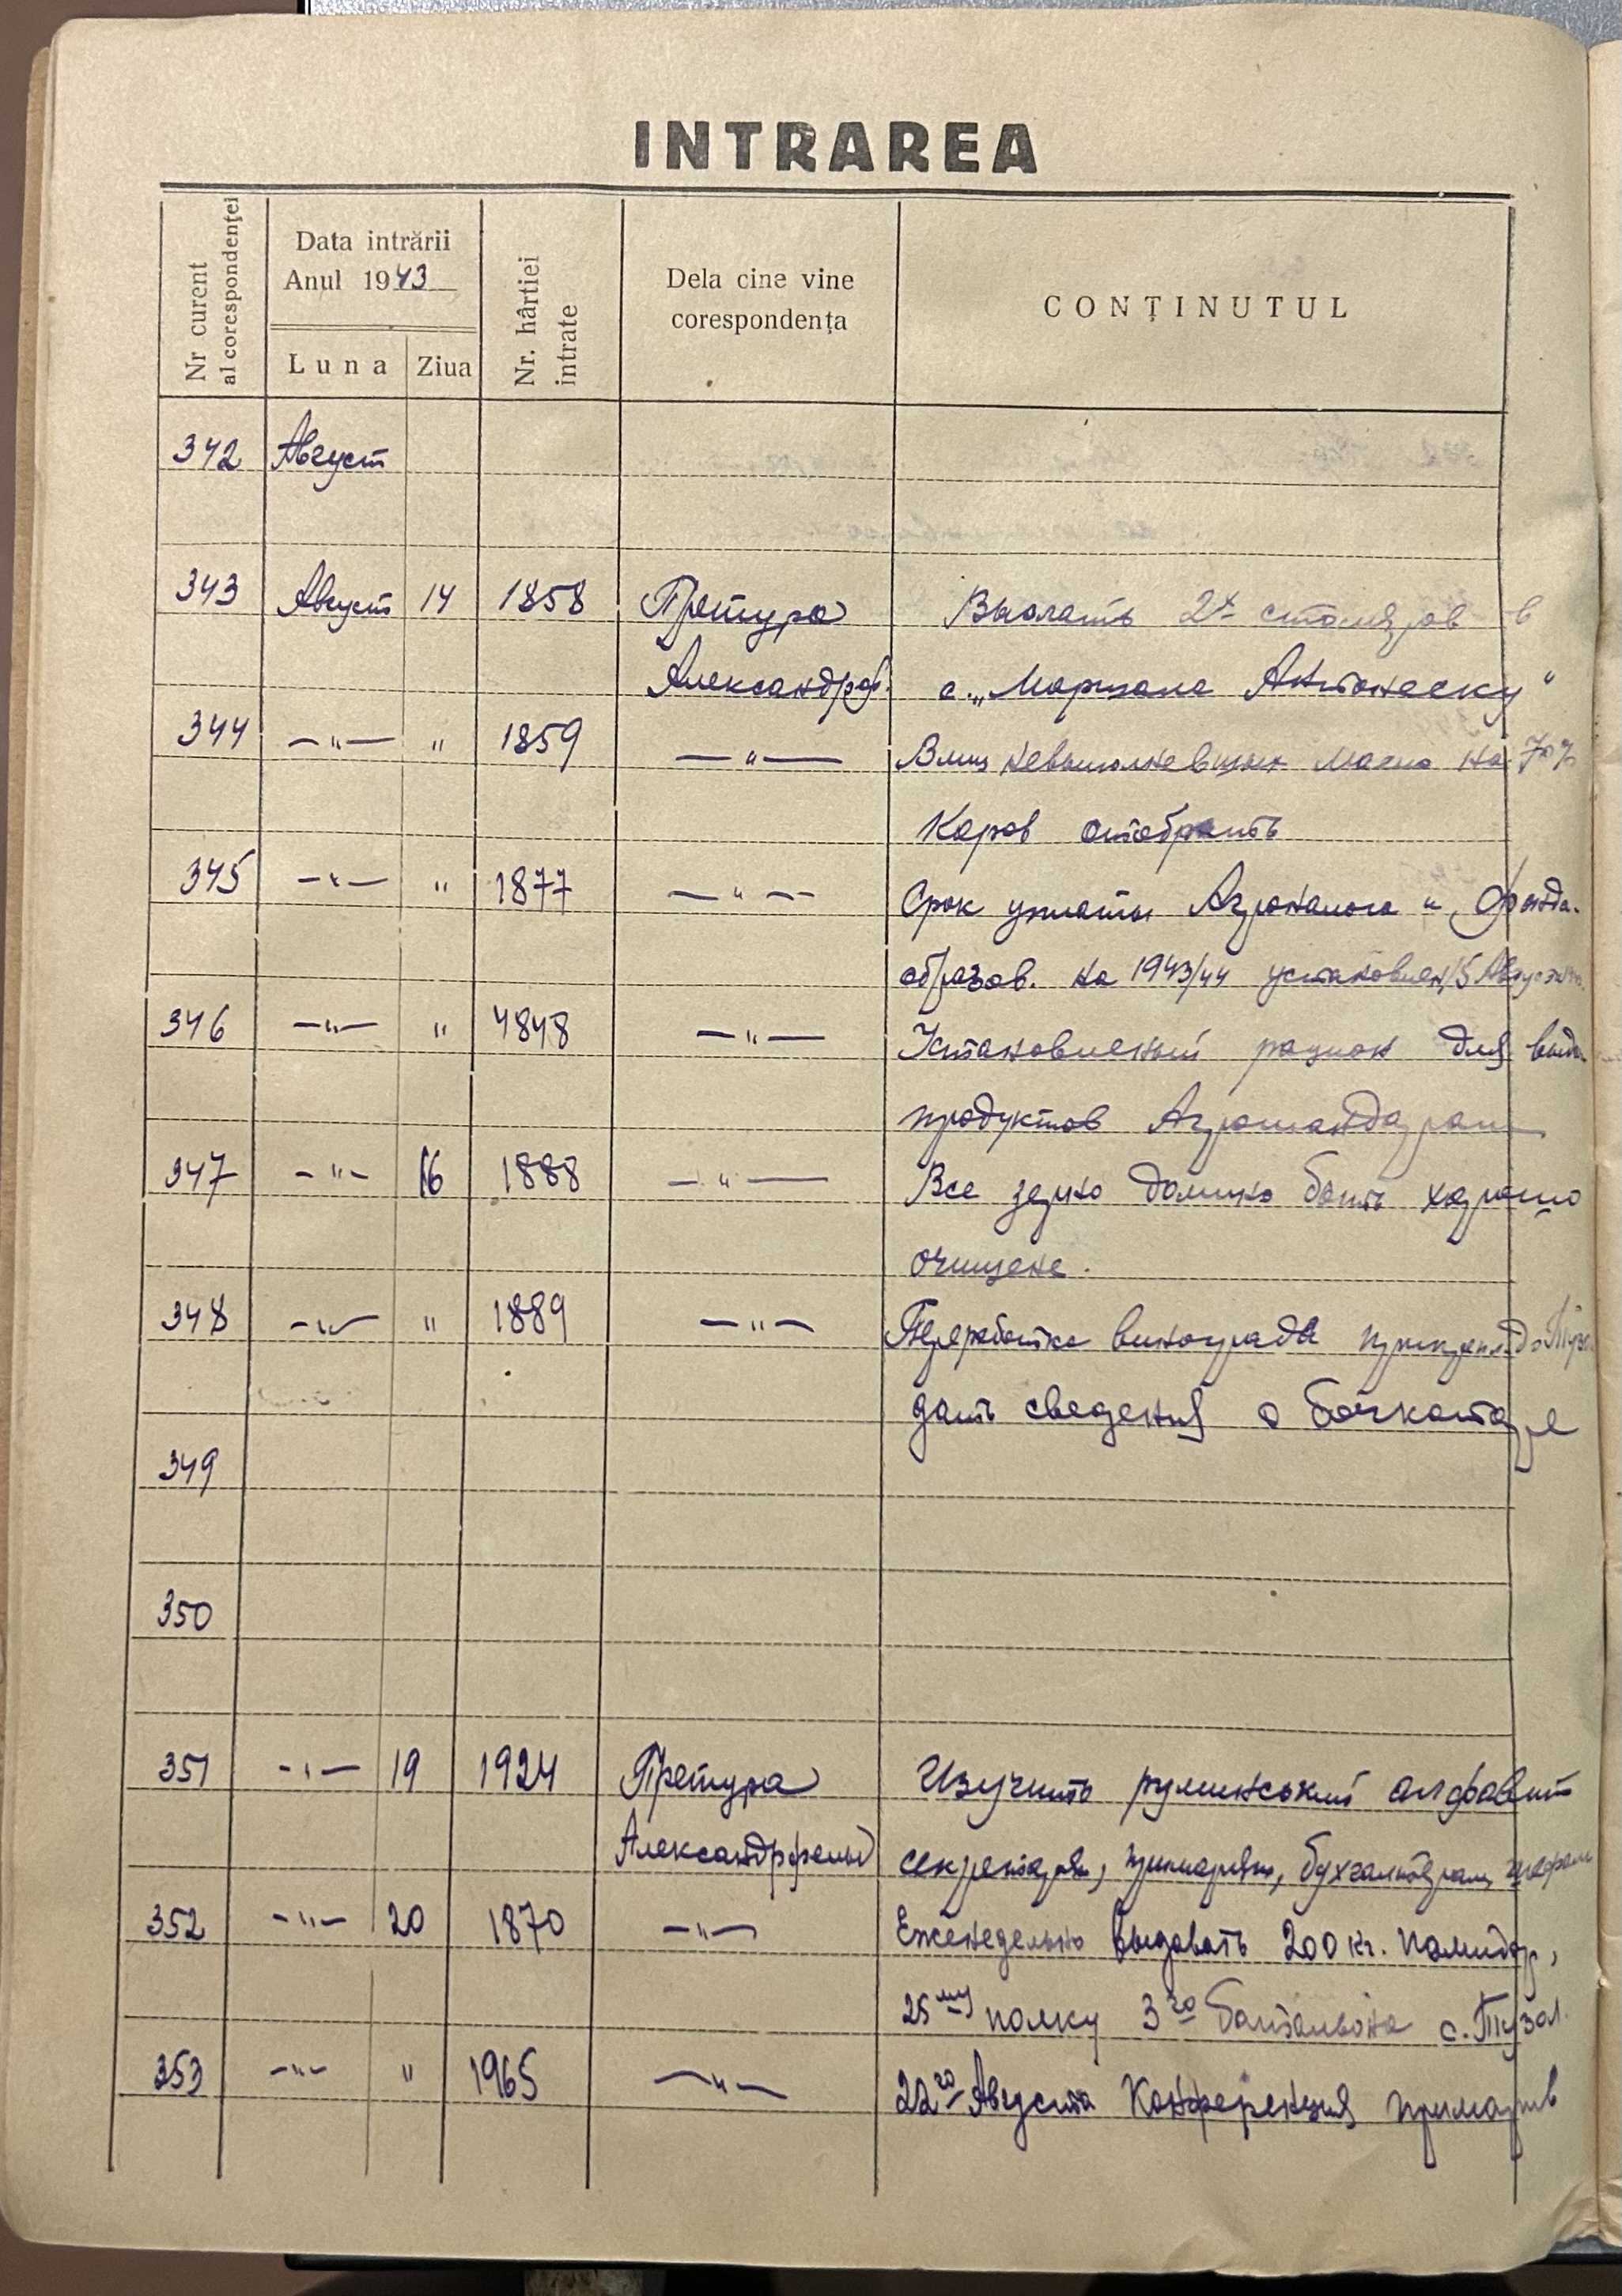 INTRAREA
Nr curent al corespondenței
Data intrării
Anul 1943
Luna
Ziua
Nr. hârtiei intrate
Dela cine vine
corespondența
CONȚINUTUL
342 Август
343 Август 14 1858 Претура Выслать 2х столяров в
Александрф. с. „Маршала Антонеску“
344 —"— " 1859 —"— невыполневших масло на 70%
Коров отобрать
345 —"— " 1877 —"— Срок уплаты Агроналога и Фонда.
образов. на 1943/44 установлен 15 Августа
346 —"— " 4848 —"— Установленый рацион для
продуктов Агрожандарам
347 —"— 16 1888 —"— Все зерно должно бить хорошо
очищене.
348 —"— " 1889 —"— Переработка винограда
дать сведения о бочкотаре
349
350
351 —"— 19 1924 Претура Изучить руминський алфавит
Александрфельд секретарям, примарям, бухгалтерам, шефам
352 —"— 20 1870 —"— Еженедельно выдавать 200 кг. помидор,
25му полку 3го батальвона с. Тузл.
353 —"— " 1965 —"— 22го Августа Конференция примарив